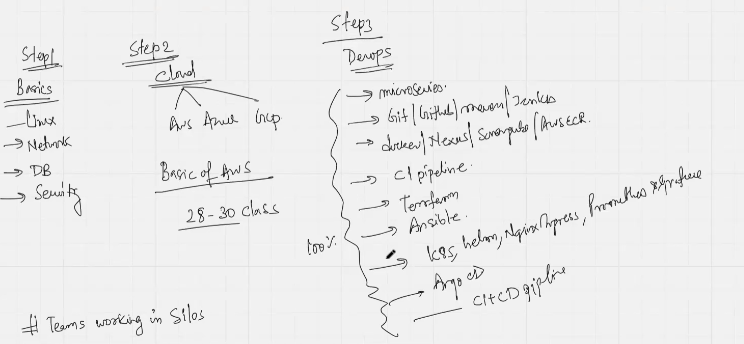 Step1
Basics
Linux
→ Network
→ DB
→ Security
Step2
Cloud
Aws Azure Gcp
Basic of Aws
28-30 class
Step3
Devops
→ microservies.
→ Git/Github/maven/Jenkis
→ docker/Nexus/Sonarqube/AWSECR.
→ CI pipeline.
→ Terraform
→ Ansible.
100%
→ K8S, helm, Nginx Ingress, Prometheus & Grafana
→ Argo CD
CI+CD pipline
# Teams working in Silos